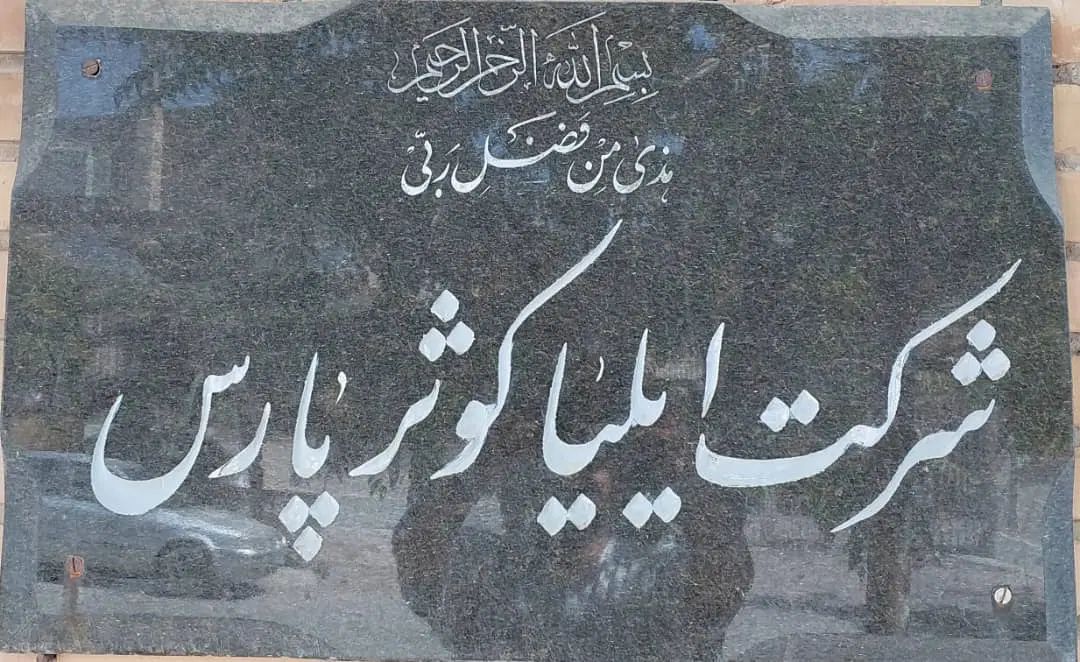 بِسْمِ اللَّهِ الرَّحْمٰنِ الرَّحِيمِ
هذی مِن فَضْلِ رَبّی
شرکت ایلیا کوثر پارس